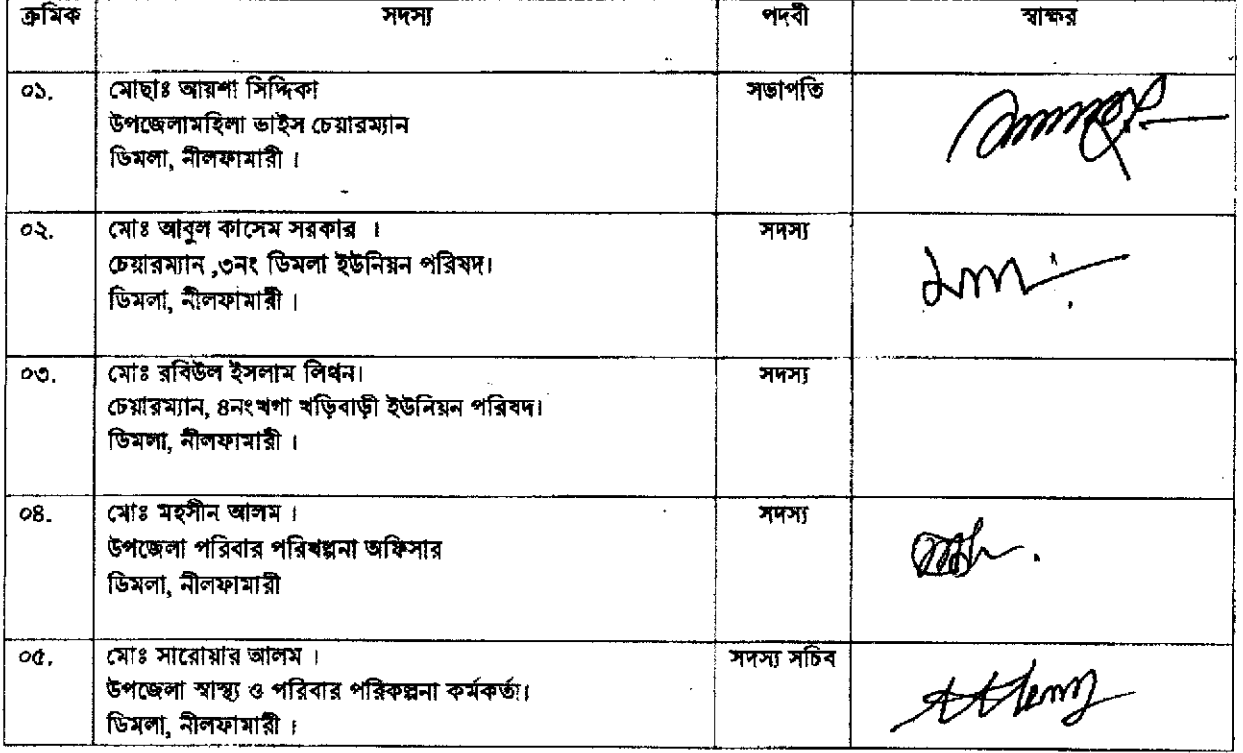 ক্রমিক সদস্য পদবী স্বাক্ষর
০১. মোছাঃ আয়শা সিদ্দিকা সভাপতি
উপজেলামহিলা ভাইস চেয়ারম্যান
ডিমলা, নীলফামারী ।
০২. মোঃ আবুল কাসেম সরকার । সদস্য
চেয়ারম্যান ,৩নং ডিমলা ইউনিয়ন পরিষদ।
ডিমলা, নীলফামারী ।
০৩. মোঃ রবিউল ইসলাম লিথন। সদস্য
চেয়ারম্যান, ৪নংখগা খড়িবাড়ী ইউনিয়ন পরিষদ।
ডিমলা, নীলফামারী ।
০৪. মোঃ মহসীন আলম । সদস্য
উপজেলা পরিবার পরিখল্পনা অফিসার
ডিমলা, নীলফামারী
০৫. মোঃ সারোয়ার আলম । সদস্য সচিব
উপজেলা স্বাস্থ্য ও পরিবার পরিকল্পনা কর্মকর্তা।
ডিমলা, নীলফামারী ।